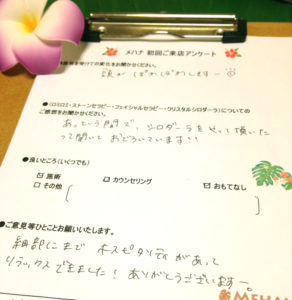 メハナ 初回ご来店アンケート
を受けての変化をお聞かせください。
頭が ぽかぽかします〜
●(ロミロミ・ストーンセラピー・フェイシャルセラピー・クリスタルシロダーラ)についての
ご感想をお聞かせください。
あっという間で、シロダーラをして頂いた
って聞いて おどろいています!!
●良いところ(いくつでも)
☑ 施術 □ カウンセリング ☑ おもてなし
□ その他
●ご意見等ひとことお願いいたします。
細部にまで ホスピタリティがあって
リラックスできました! ありがとうございます〜
MEHA